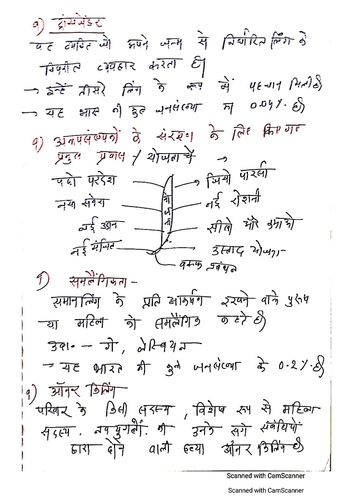 9) ट्रांसजेंडर
वह व्यक्ति जो अपने जन्म से निर्धारित लिंग के
विपरीत व्यवहार करता है।
→ इन्हें तीसरे लिंग के रूप में पहचान मिली है।
→ यह भारत की कुल जनसंख्या का 0.04% है।
9) अल्पसंख्यकों के संरक्षण के लिए किए गए
प्रमुख प्रयास / योजनायें
पढो परदेश
जियो पारसी
नया सवेरा
नई रोशनी
नई उडान
सीखो और कमाओ
नई मंजिल
उस्ताद योजना
योजना
वक्फ प्रबंधन
9) समलैंगिकता-
समानलिंग के प्रति आकर्षण रखने वाले पुरुष
या महिला को समलैंगिक कहते है।
उदा०- गे, लेस्बियन
→ यह भारत की कुल जनसंख्या के 0.2% है।
9) ऑनर किलिंग
परिवार के किसी सदस्य, विशेष रूप से महिला
सदस्य की उनके सगे संबंधियों
द्वारा होने वाली हत्या ऑनर किलिंग है।
Scanned with CamScanner
Scanned with CamScanner